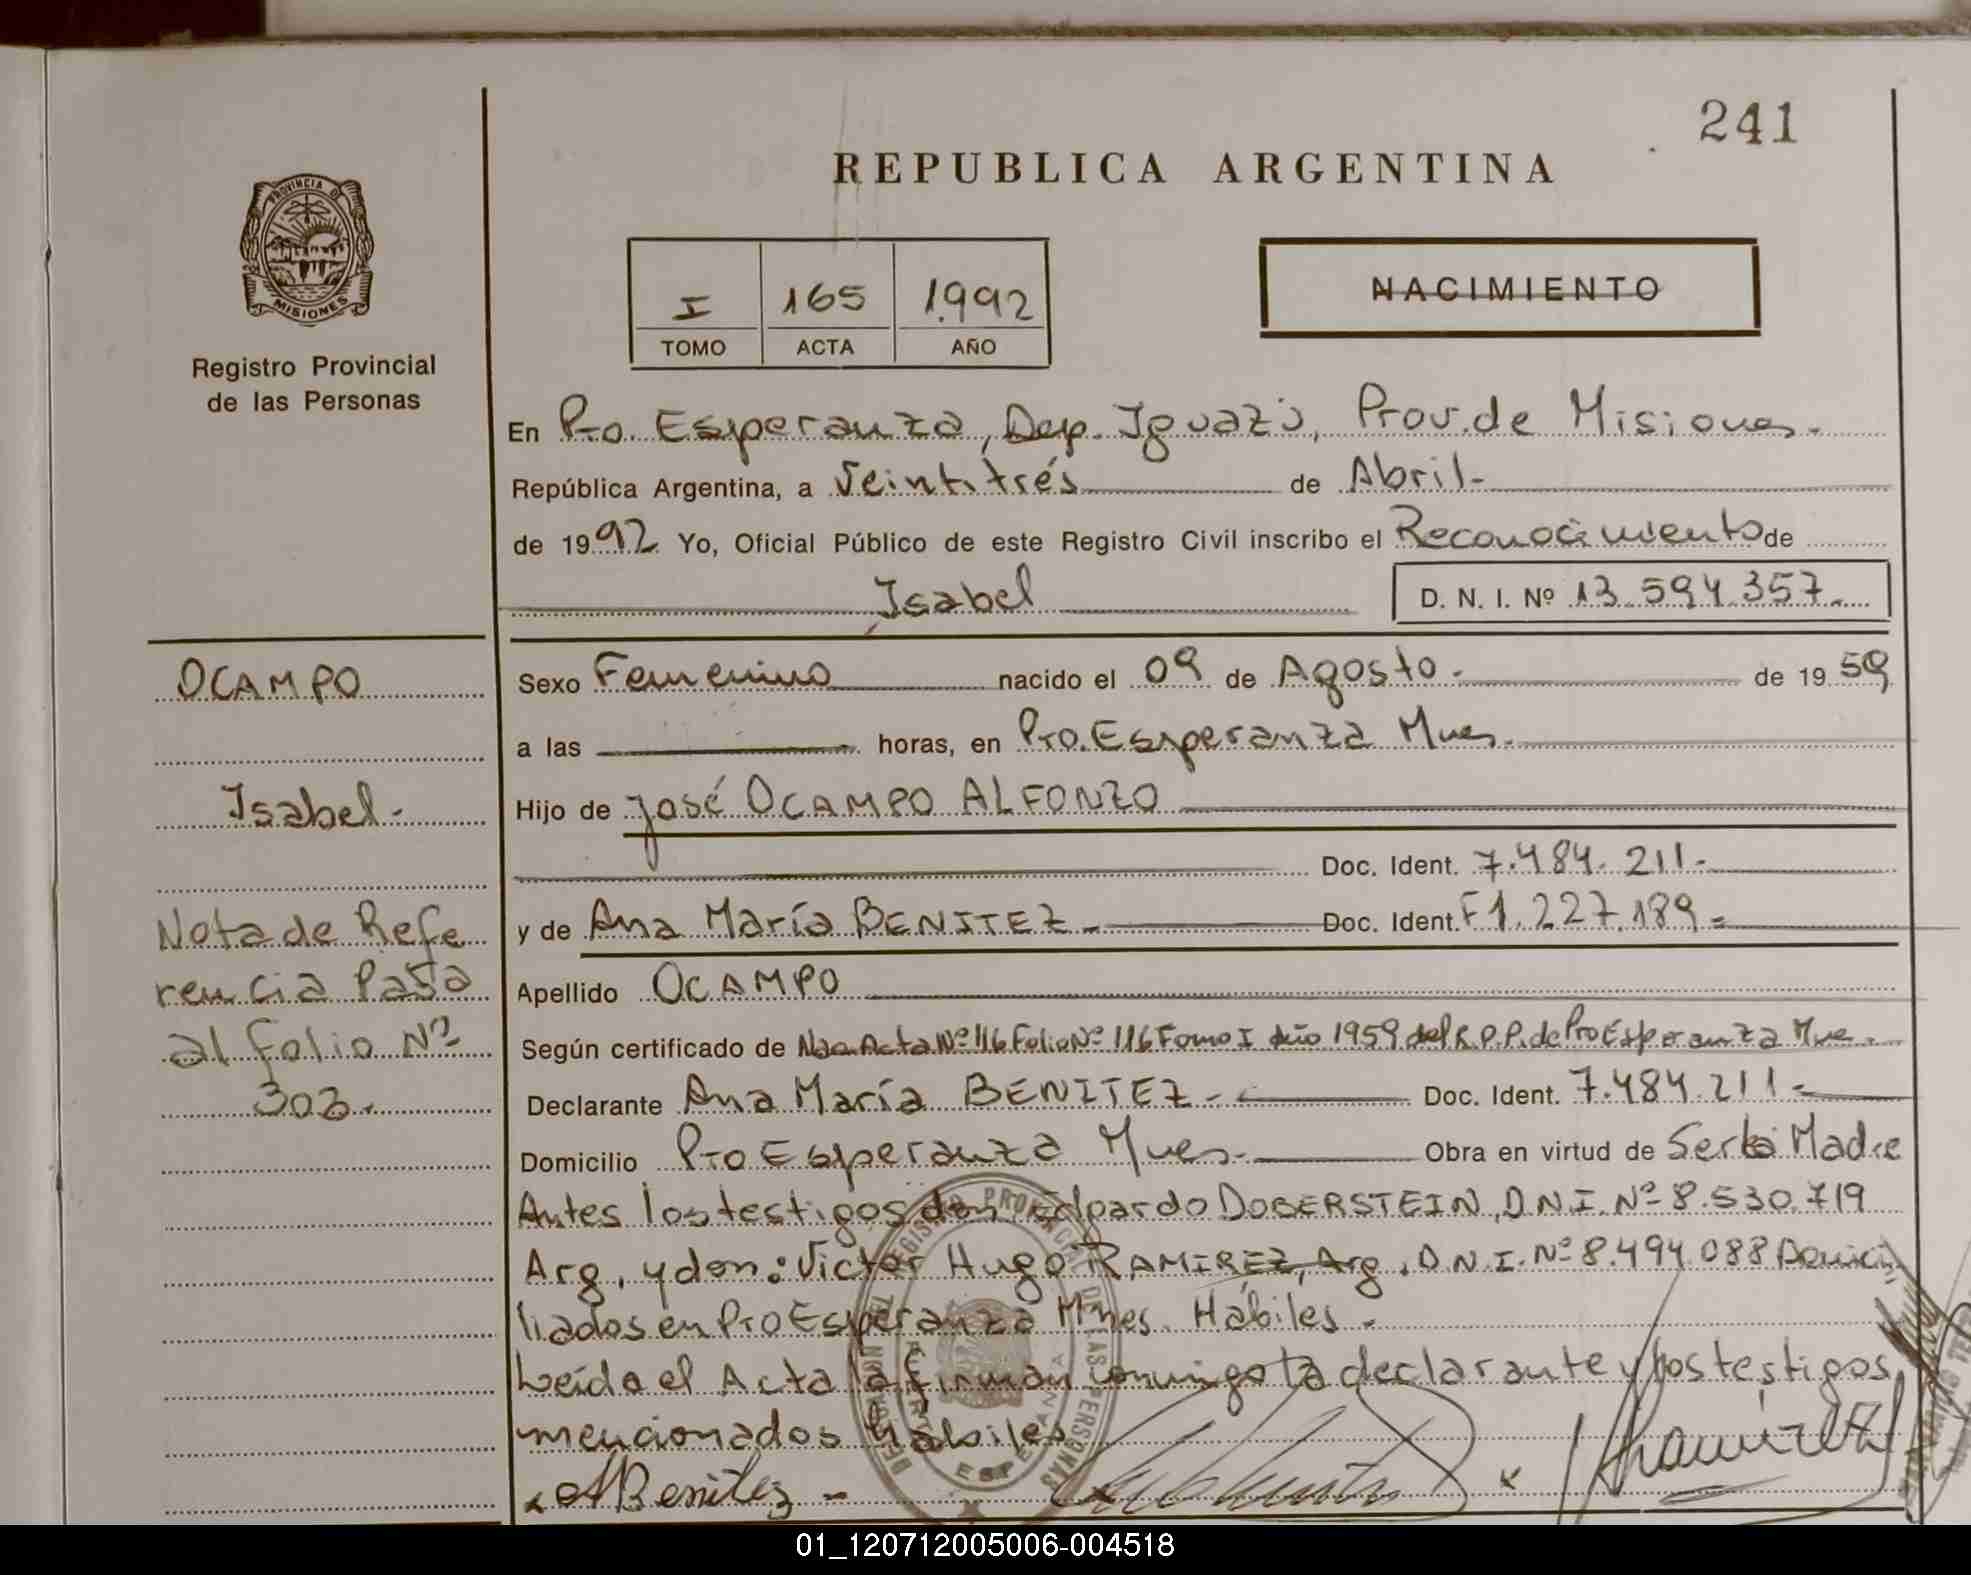 241
REPUBLICA ARGENTINA
PROVINCIA DE
MISIONES
Registro Provincial
de las Personas
I 165 1.992
TOMO ACTA AÑO
NACIMIENTO
En Pto. Esperanza, Dep. Iguazú, Prov. de Misiones.
República Argentina, a Veintitrés de Abril.-
de 1992 Yo, Oficial Público de este Registro Civil inscribo el Reconocimiento de
Isabel D. N. I. Nº 13.594.357.-
OCAMPO
Isabel.-
Nota de Refe
rencia Pasa
al folio Nº
303.-
Sexo Femenino nacido el 09 de Agosto.- de 1959
a las horas, en Pto. Esperanza Mnes.
Hijo de José OCAMPO ALFONZO
Doc. Ident. 7.484.211.-
y de Ana María BENITEZ.- Doc. Ident. F1.227.189.=
Apellido OCAMPO
Según certificado de Nac. Acta Nº 116 Folio Nº 116 Tomo I Año 1959 del R.P.P. de Pto Esperanza Mne.
Declarante Ana María BENITEZ.- Doc. Ident. 7.484.211.=
Domicilio Pto Esperanza Mnes.- Obra en virtud de Ser la Madre
Antes los testigos don, Edgardo DOBERSTEIN, D.N.I. Nº 8.530.719
Arg, y don: Victor Hugo RAMIREZ, Arg. D.N.I. Nº 8.494.088 Domici
liados en Pto Esperanza Mnes. Hábiles.-
Leído el Acta la firman conmigo la declarante y los testigos
mencionados hábiles
ABenitez.- Ramirez
01_120712005006-004518